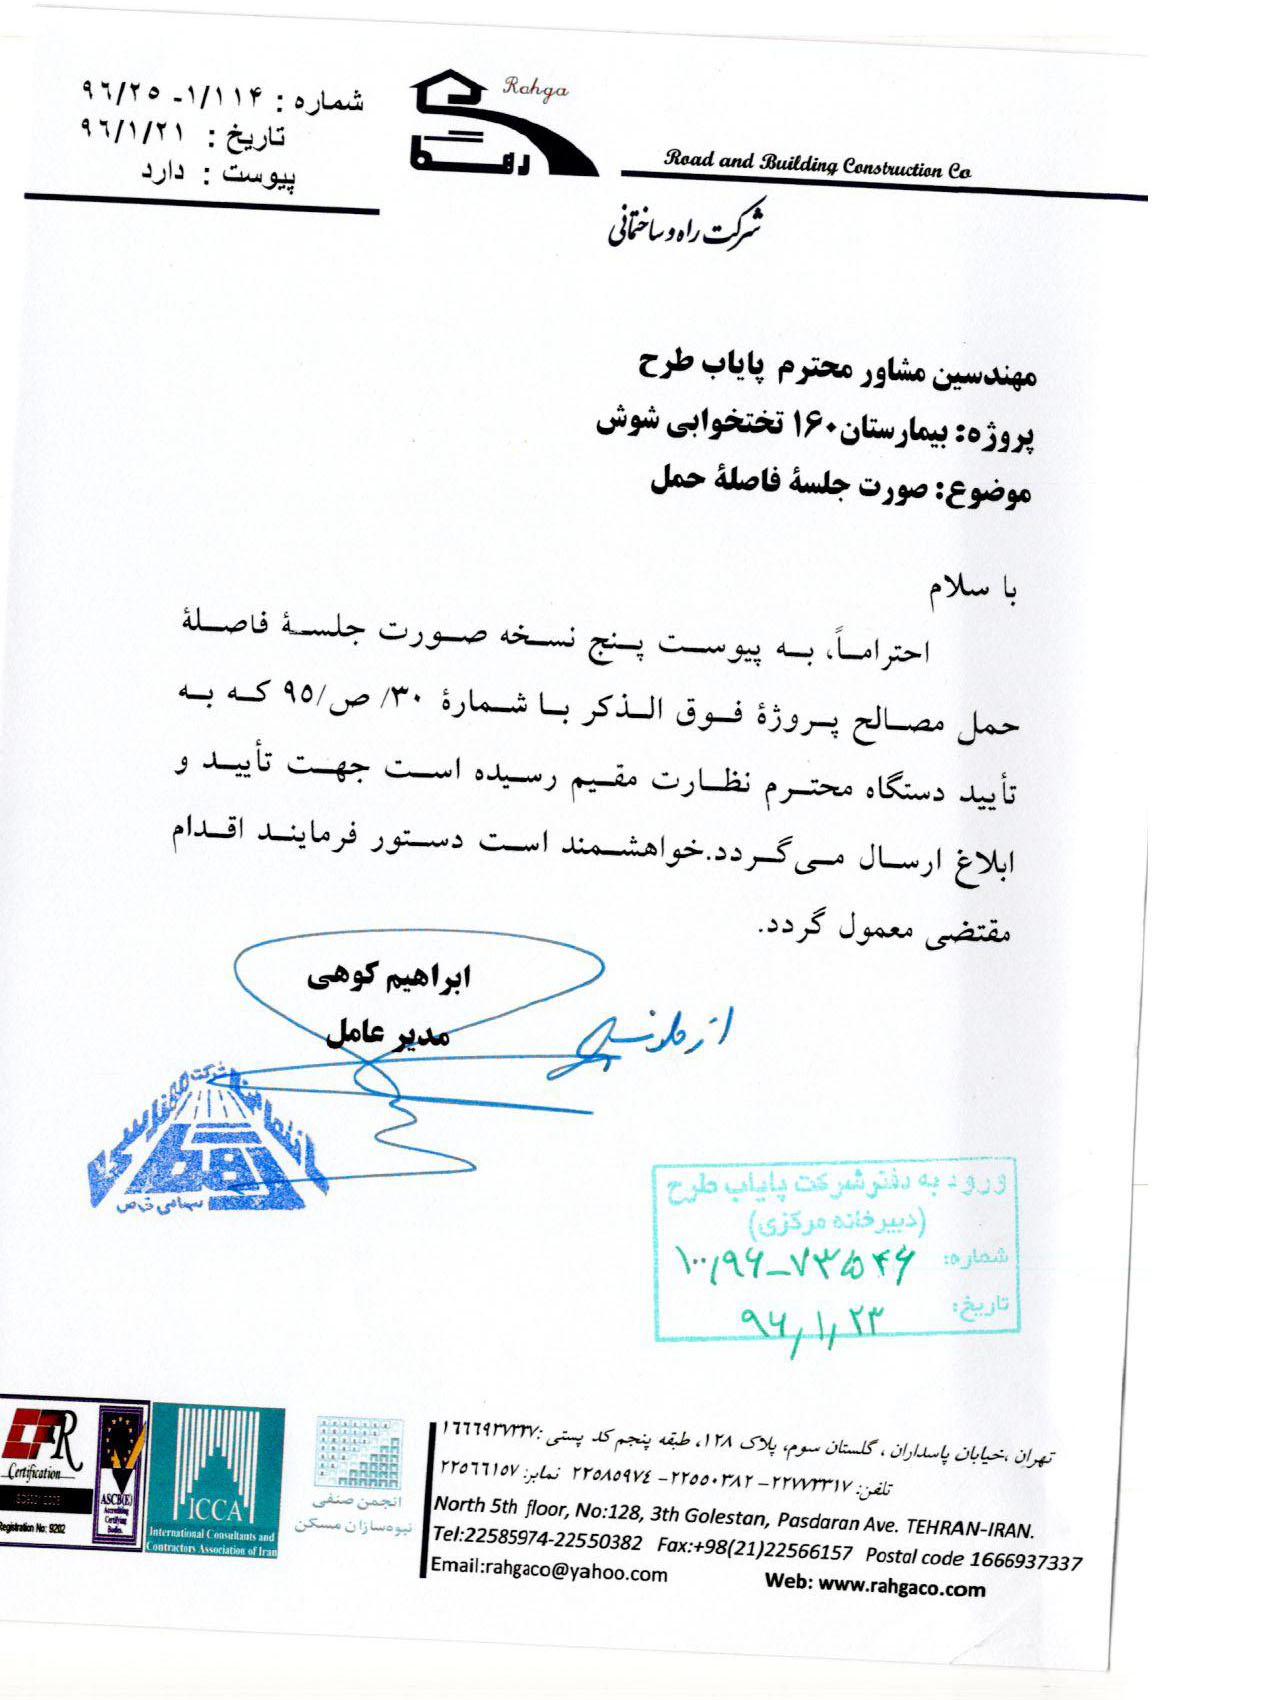 شماره : ۹۶/۲۵ -۱/۱۱۴
تاریخ : ۹۶/۱/۲۱
پیوست : دارد
Rahga
رهگا
Road and Building Construction Co
شرکت راه و ساختمانی
مهندسین مشاور محترم پایاب طرح
پروژه: بیمارستان۱۶۰ تختخوابی شوش
موضوع: صورت جلسۀ فاصلۀ حمل
با سلام
احتراماً، به پیوست پنج نسخه صورت جلسۀ فاصلۀ
حمل مصالح پروژۀ فوق الذکر با شمارۀ ۳۰/ ص/۹۵ که به
تأیید دستگاه محترم نظارت مقیم رسیده است جهت تأیید و
ابلاغ ارسال می‌گردد.خواهشمند است دستور فرمایند اقدام
مقتضی معمول گردد.
ابراهیم کوهی
مدیر عامل
از طرف
شرکت
رهگا
سهامی خاص
ورود به دفتر شرکت پایاب طرح
(دبیرخانه مرکزی)
شماره: ۱۰۰/۹۶-۷۳۵۴۶
تاریخ: ۹۶/۱/۲۳
R
Certification
Registration No: 9202
ASCB(E)
Accrediting
Certifying
Bodies.
ICCA
International Consultants and
Contractors Association of Iran
انجمن صنفی
نبوه‌سازان مسکن
تهران ،خیابان پاسداران ، گلستان سوم، پلاک ۱۲۸، طبقه پنجم کد پستی :۱۶۶۶۹۳۷۳۳۷
تلفن: ۲۲۷۷۳۳۱۷ -۲۲۵۵۰۳۸۲ -۲۲۵۸۵۹۷٤ نمابر: ۲۲۵٦٦۱۵۷
North 5th floor, No:128, 3th Golestan, Pasdaran Ave. TEHRAN-IRAN.
Tel:22585974-22550382 Fax:+98(21)22566157 Postal code 1666937337
Email:rahgaco@yahoo.com Web: www.rahgaco.com